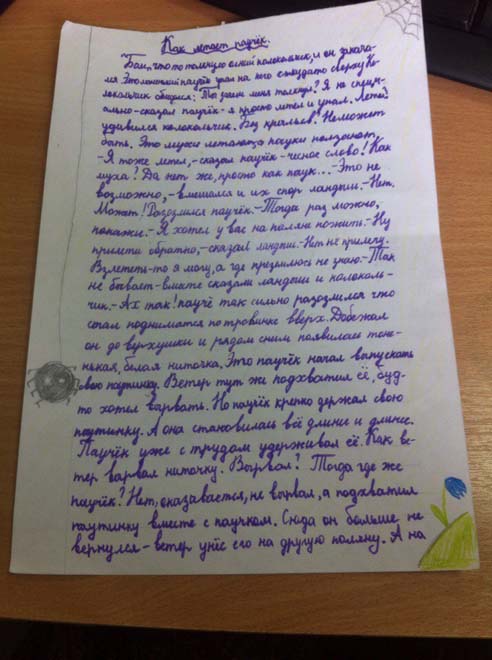 Как летает паучёк.
Бам, что то толкнуло синий колокольчик, и он закача-
лся. Это маленький паучёк упал на него откуда то сверху. Ко-
локольчик обиделся: - Ты зачем меня толкнул? Я не специ-
ально - сказал паучёк - я просто летел и упал. Летел?
удивился колокольчик. Без крыльев? Неможет
быть. Это мухи летают, а пауки ползают.
- Я тоже летел, - сказал паучёк - чесное слово! Как
муха? Да нет же, просто как паук... - Это не
возможно, - вмешался в их спор ландыш. - Нет.
Может! Разозлился паучёк. - Тогда раз можно,
покажи. - Я хотел у вас на поляне пожить. - Ну
прилети обратно, - сказал ландыш. - Нет не прилечу.
Взлететь-то я могу, а где приземлюсь не знаю. - Так
не бывает - вместе сказали ландыш и колоколь-
чик. - Ах так! паучё так сильно разозлился что
стал подниматся по травинке вверх. Добежал
он до верхушки и рядом с ним появилась тоне-
нькая, белая ниточка. Это паучёк начал выпускать
свою паутинку. Ветер тут же подхватил её, буд-
то хотел варвать. Но паучёк крепко держал свою
паутинку. А она становилась всё длинее и длинее.
Паучёк уже с трудом удерживал её. Как ве-
тер варвал ниточку. Вырвал? Тогда где же
паучёк? Нет, оказавается, не вырвал, а подхватил
паутинку вместе с паучком. Сюда он больше не
вернулся - ветер унёс его на другую поляну. А на